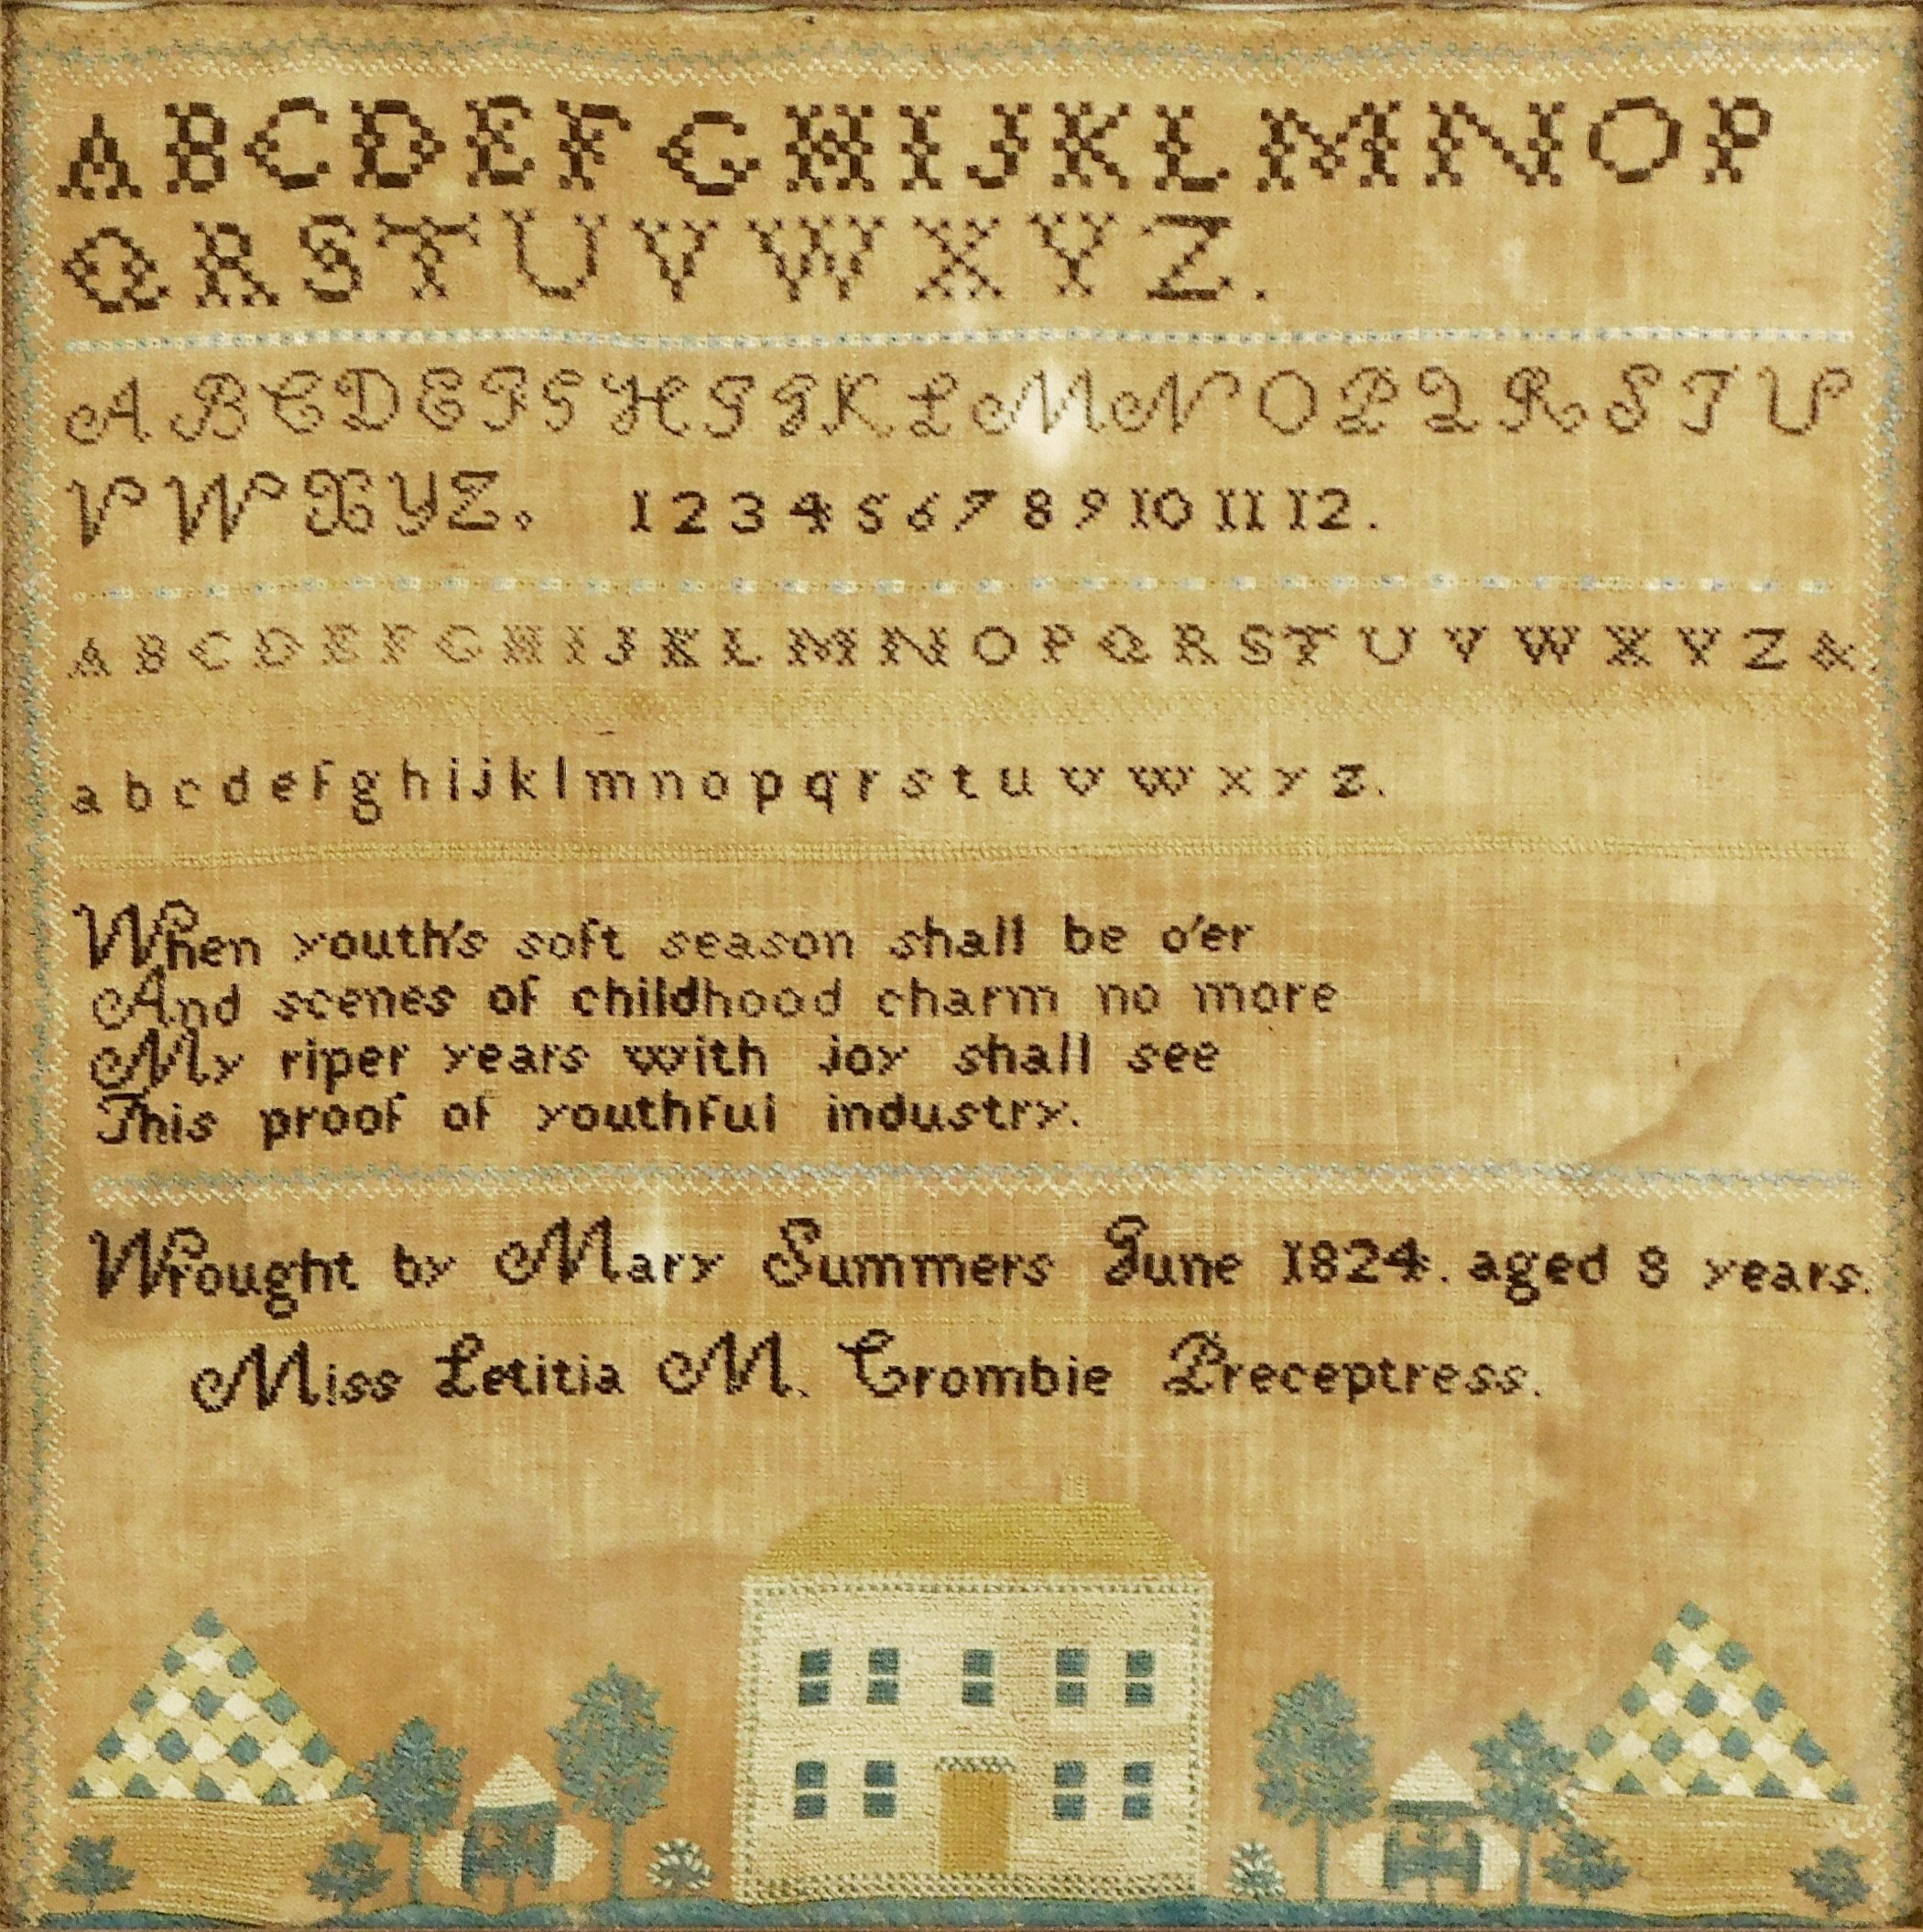 A B C D E F G H I J K L M N O P
Q R S T U V W X Y Z.
A B C D E F G H I J K L M N O P Q R S T U
V W X Y Z. 1 2 3 4 5 6 7 8 9 10 11 12.
A B C D E F G H I J K L M N O P Q R S T U V W X Y Z &.
a b c d e f g h i j k l m n o p q r s t u v w x y z.
When youth's soft season shall be o'er
And scenes of childhood charm no more
My riper years with joy shall see
This proof of youthful industry.
Wrought by Mary Summers June 1824. aged 8 years.
Miss Letitia M. Crombie Preceptress.